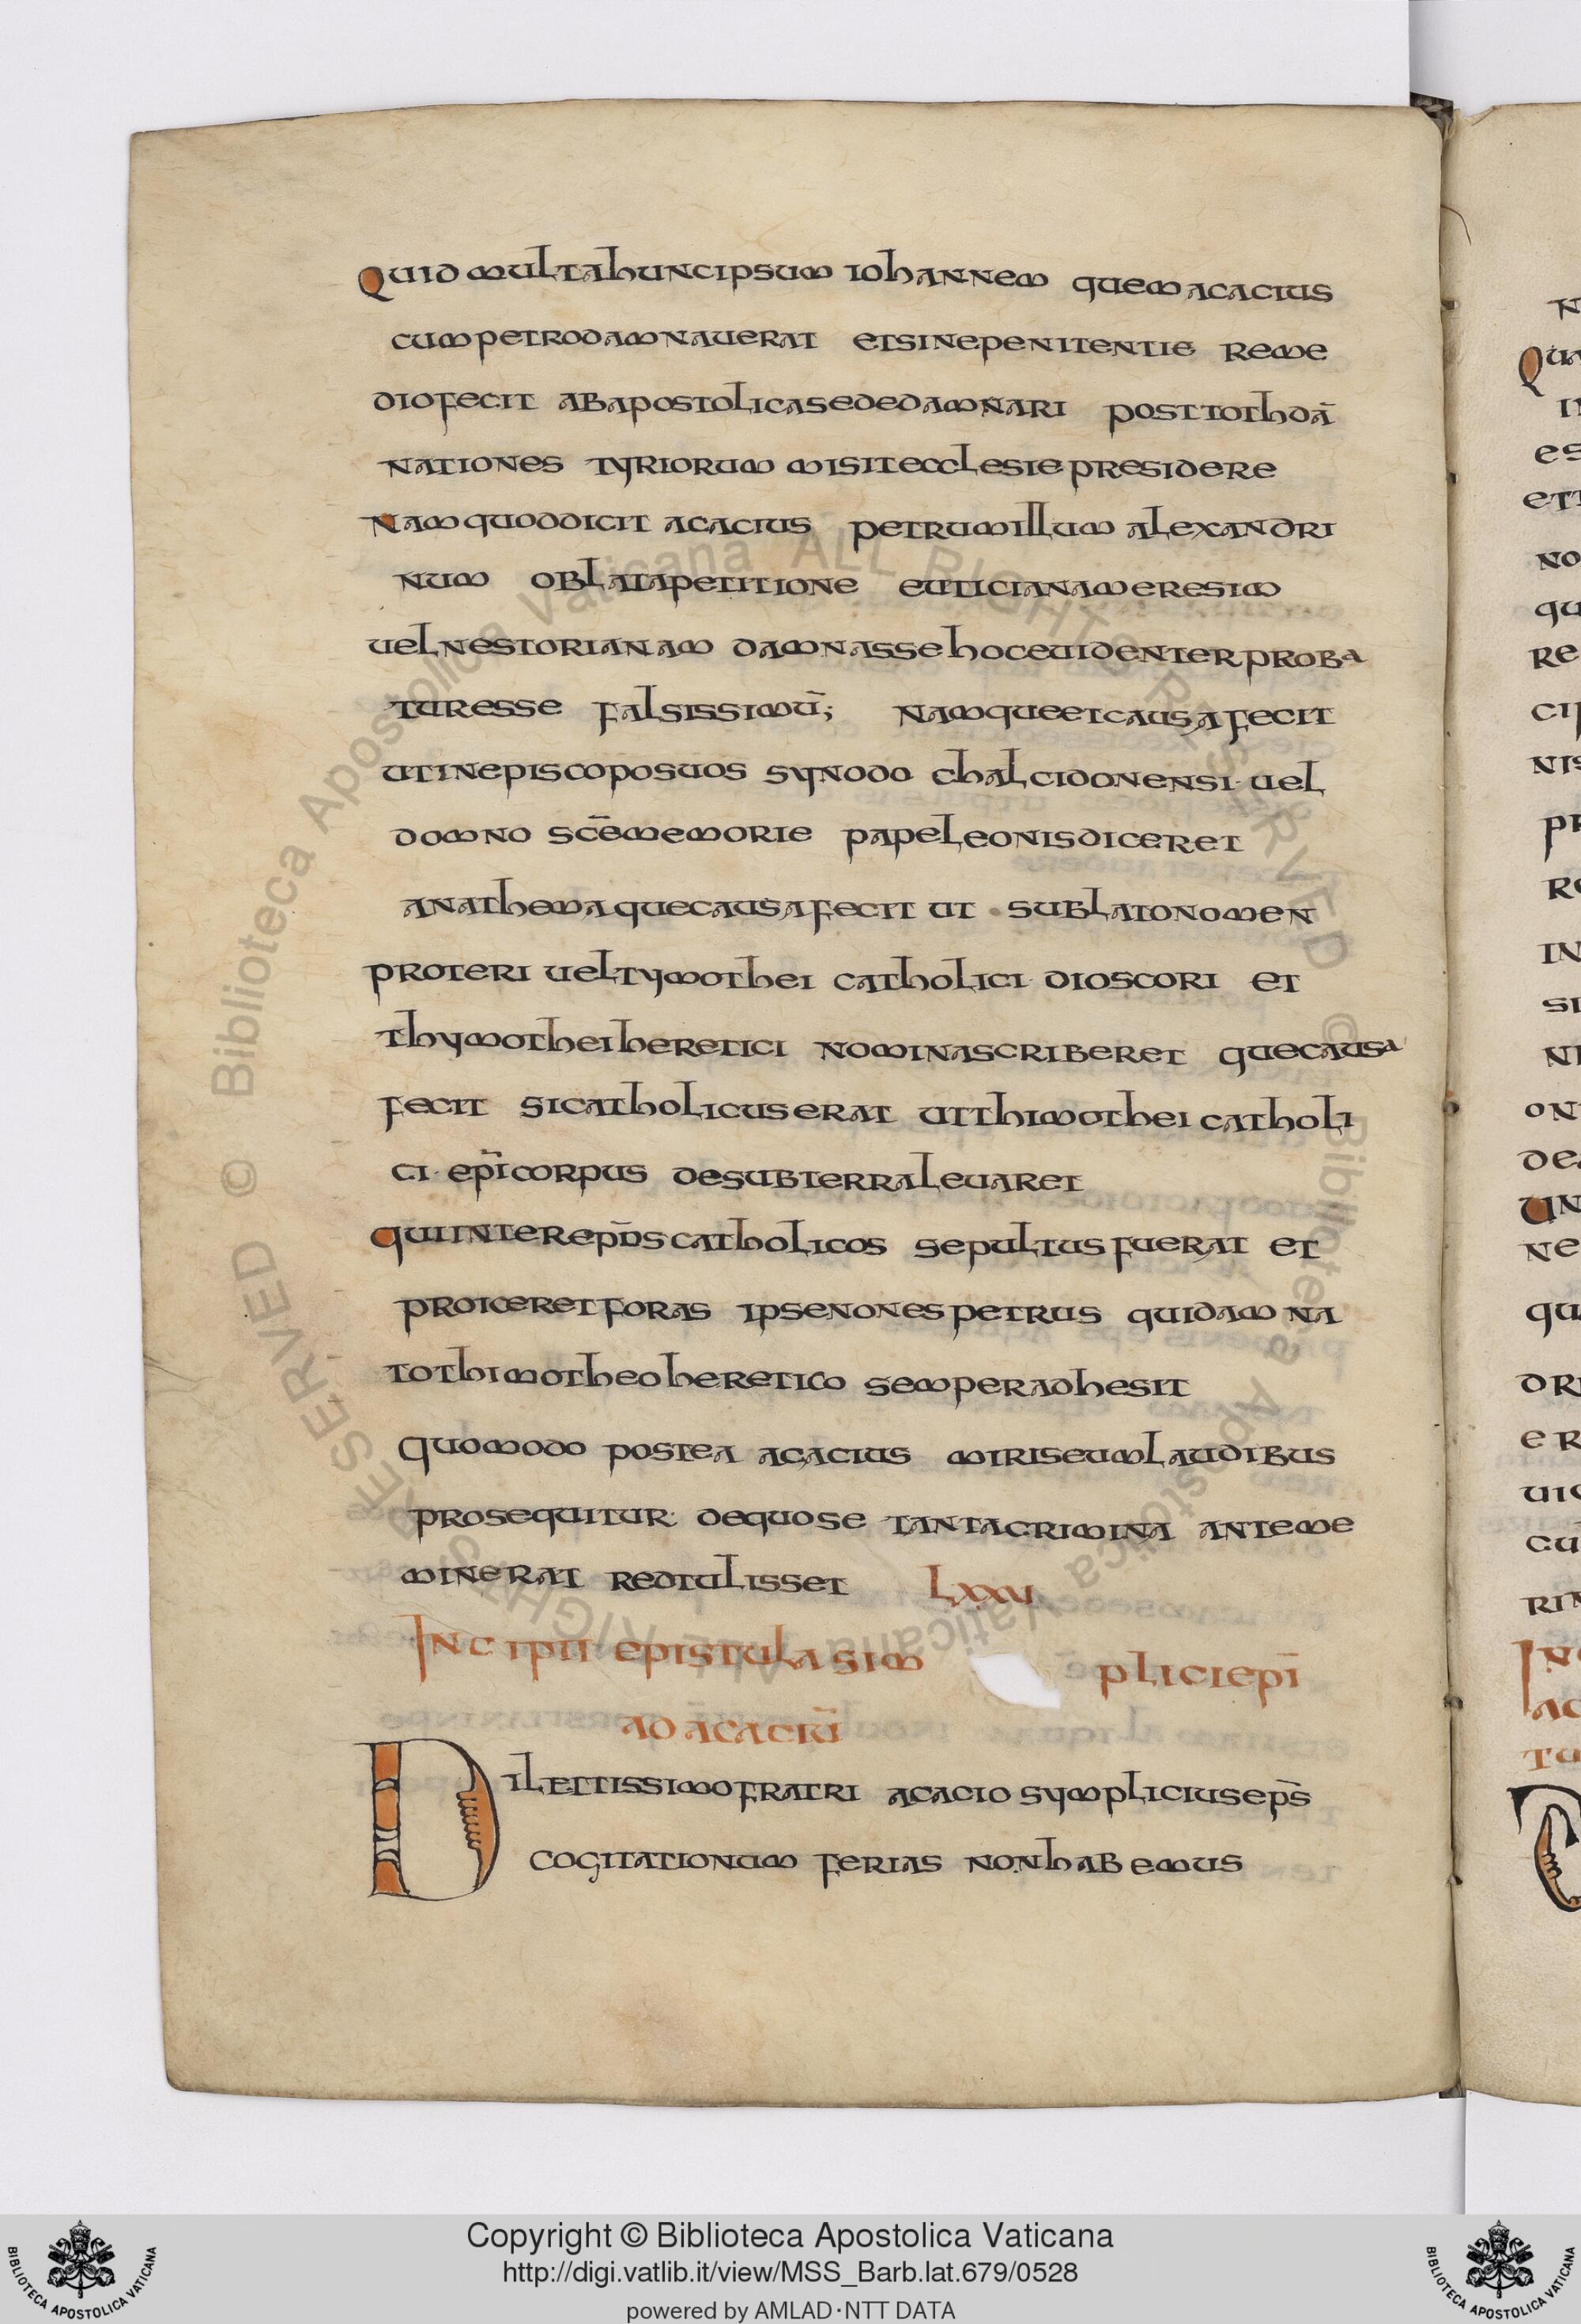 Quid multa hunc ipsum iohannem quem acacius
cum petro damnauerat et sine penitentie reme
dio fecit ab apostolica sede damnari post toth dā
nationes tyriorum misit ecclesie presidere
Nam quod dicit acacius petrum illum alexandri
num oblata petitione euticianam eresim
uel nestorianam damnasse hoc euidenter proba
tur esse falsissimū; Namque et causa fecit
ut in episcopos uos synodo chalcidonensi uel
domno scē memorie pape leonis diceret
anathema que causa fecit ut sublato nomen
proteri uel tymothei catholici dioscori et
thymothei heretici nomina scriberet que causa
fecit si catholicus erat ut thimothei catholi
ci epī corpus de sub terra leuaret
qui inter epōs catholicos sepultus fuerat et
proiceret foras ipse non es petrus qui damna
to thimotheo heretico semper adhesit
Quomodo postea acacius miris eum laudibus
prosequitur de quo se tanta crimina ante me
minerat redtulisset LXXV
Incipit epistula sim plici epī
ad acaciū
Dilettissimo fratri acacio symplicius eps̄
cogitationum ferias non habemus
Copyright © Biblioteca Apostolica Vaticana
http://digi.vatlib.it/view/MSS_Barb.lat.679/0528
powered by AMLAD·NTT DATA